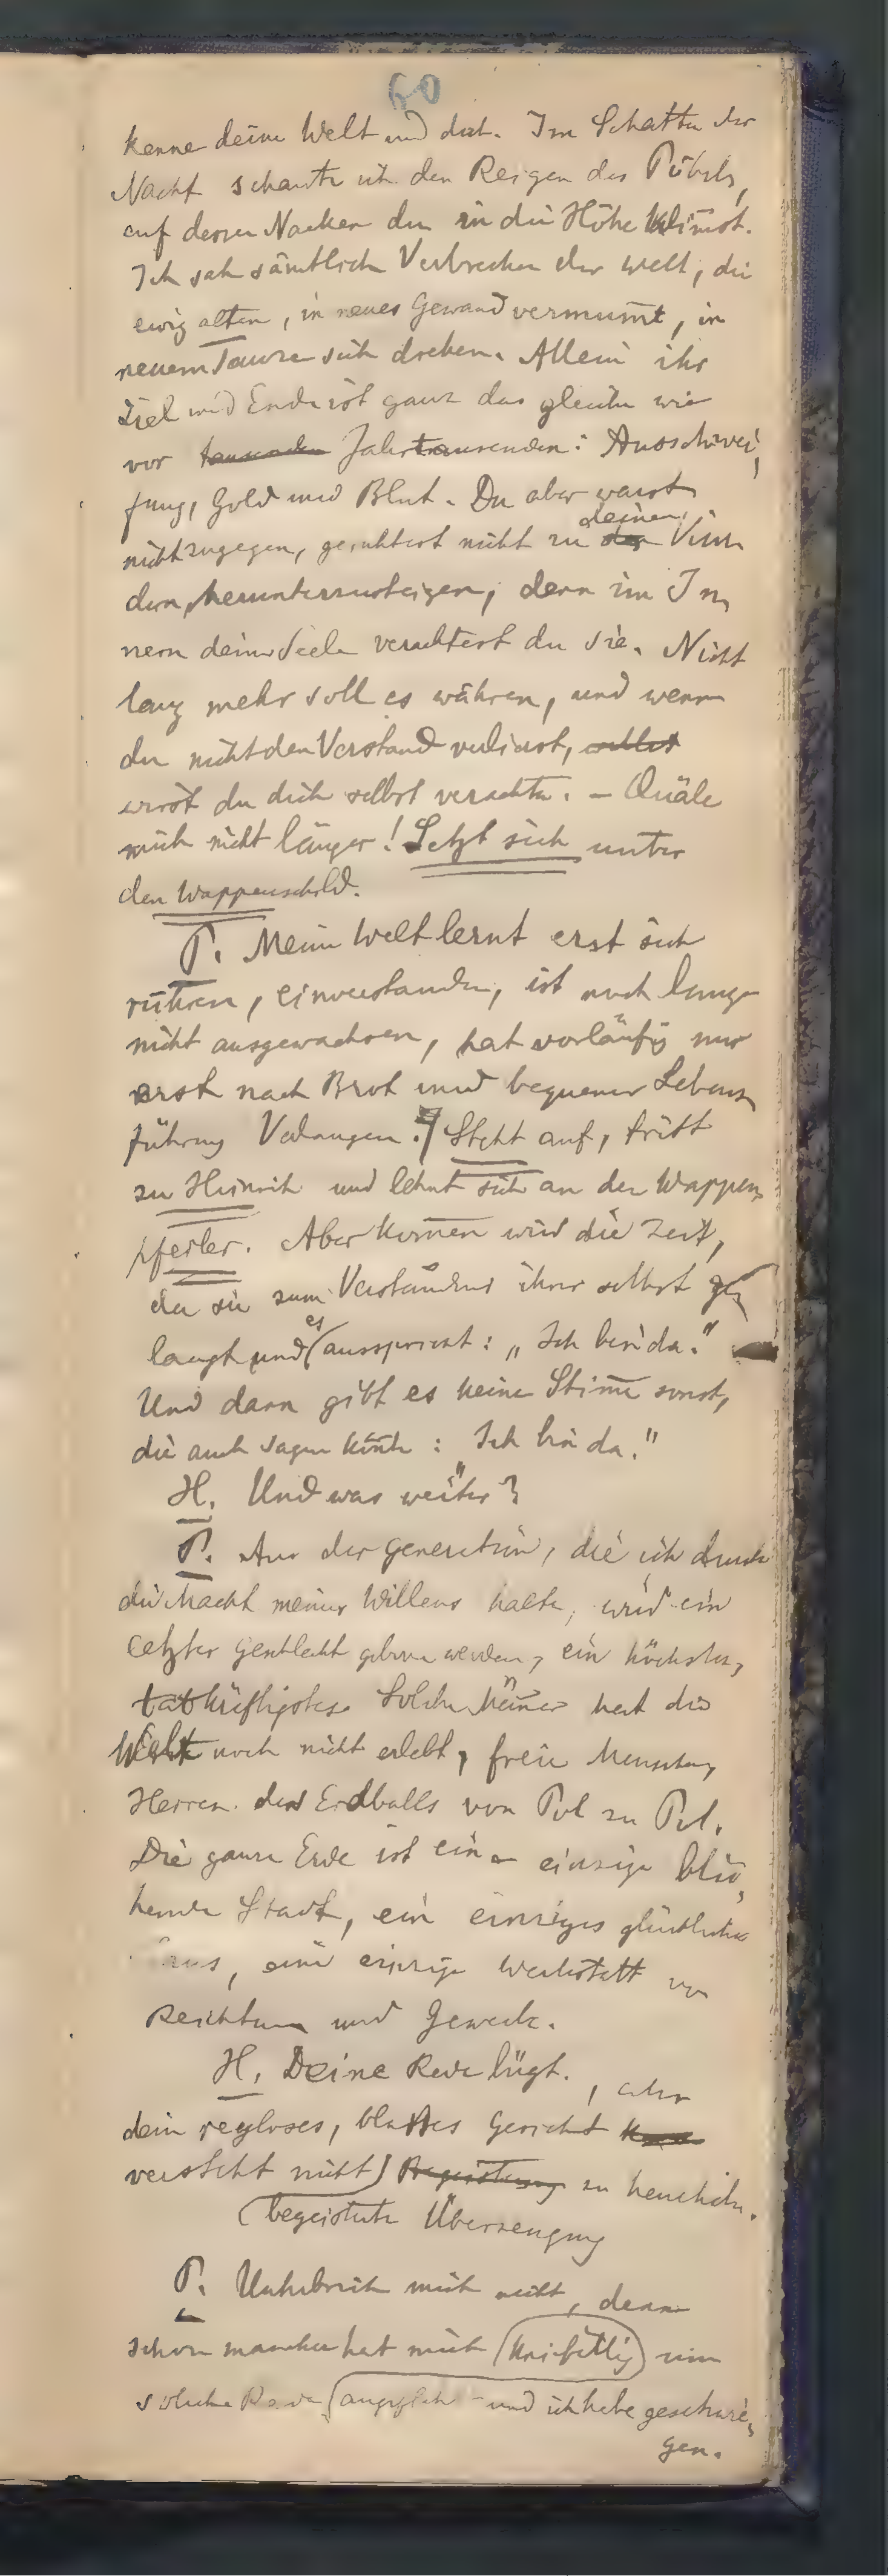 60
kenne deine Welt und dich. Im Schatten der
Nacht schaute ich den Reigen des Pöbels,
auf dessen Nacken du in die Höhe klim̅st.
Ich sah sämtliche Verbrechen der Welt, die
ewig alten, in neues Gewand vermum̅t, in
neuem Tanze sich drehen. Allein ihr
Ziel und Ende ist ganz das gleiche wie
vor tausenden Jahrtausenden: Ausschwei-
fung, Gold und Blut. Du aber warst
nicht zugegen, geruhtest nicht zu der deinen Kin-
dern herunterzusteigen, denn im In-
nern deiner Seele verachtest du sie. Nicht
lang mehr soll es währen, und wenn
du nicht den Verstand verlierst, selbst
wirst du dich selbst verachten. – Quäle
mich nicht länger! Setzt sich unter
den Wappenschild.
P. Meine Welt lernt erst sich
rühren, einverstanden, ist noch lange
nicht ausgewachsen, hat vorläufig nur
erst nach Brot und bequemer Lebens-
führung Verlangen. Steht auf, tritt
zu Heinrich und lehnt sich an den Wappen-
pfeiler. Aber kom̅en wird die Zeit,
da sie zum Verständnis ihrer selbst ge-
langt und es ausspricht: „Ich bin da."
Und dann gibt es keine Stim̅e sonst,
die auch sagen kön̅te: „Ich bin da."
H. Und was weiter?
P. Aus der Generation, die ich durch
die Macht meines Willens halte, wird ein
letztes Geschlecht geboren werden, ein höchstes,
tatkräftigstes. Solche Män̅er hat die
Welt noch nicht erlebt, freie Menschen,
Herren des Erdballs von Pol zu Pol.
Die ganze Erde ist eine einzige blü-
hende Stadt, ein einziges glückliches
Haus, eine einzige Werkstatt von
Reichtum und Gewerbe.
H. Deine Rede lügt, aber
dein regloses, blasses Gesicht
versteht nicht Begeisterung zu heucheln.
begeisterte Überzeugung
P. Unterbrich mich nicht, denn
schon mancher hat mich kniefällig um
solche Rede angefleht – und ich habe geschwie-
gen.